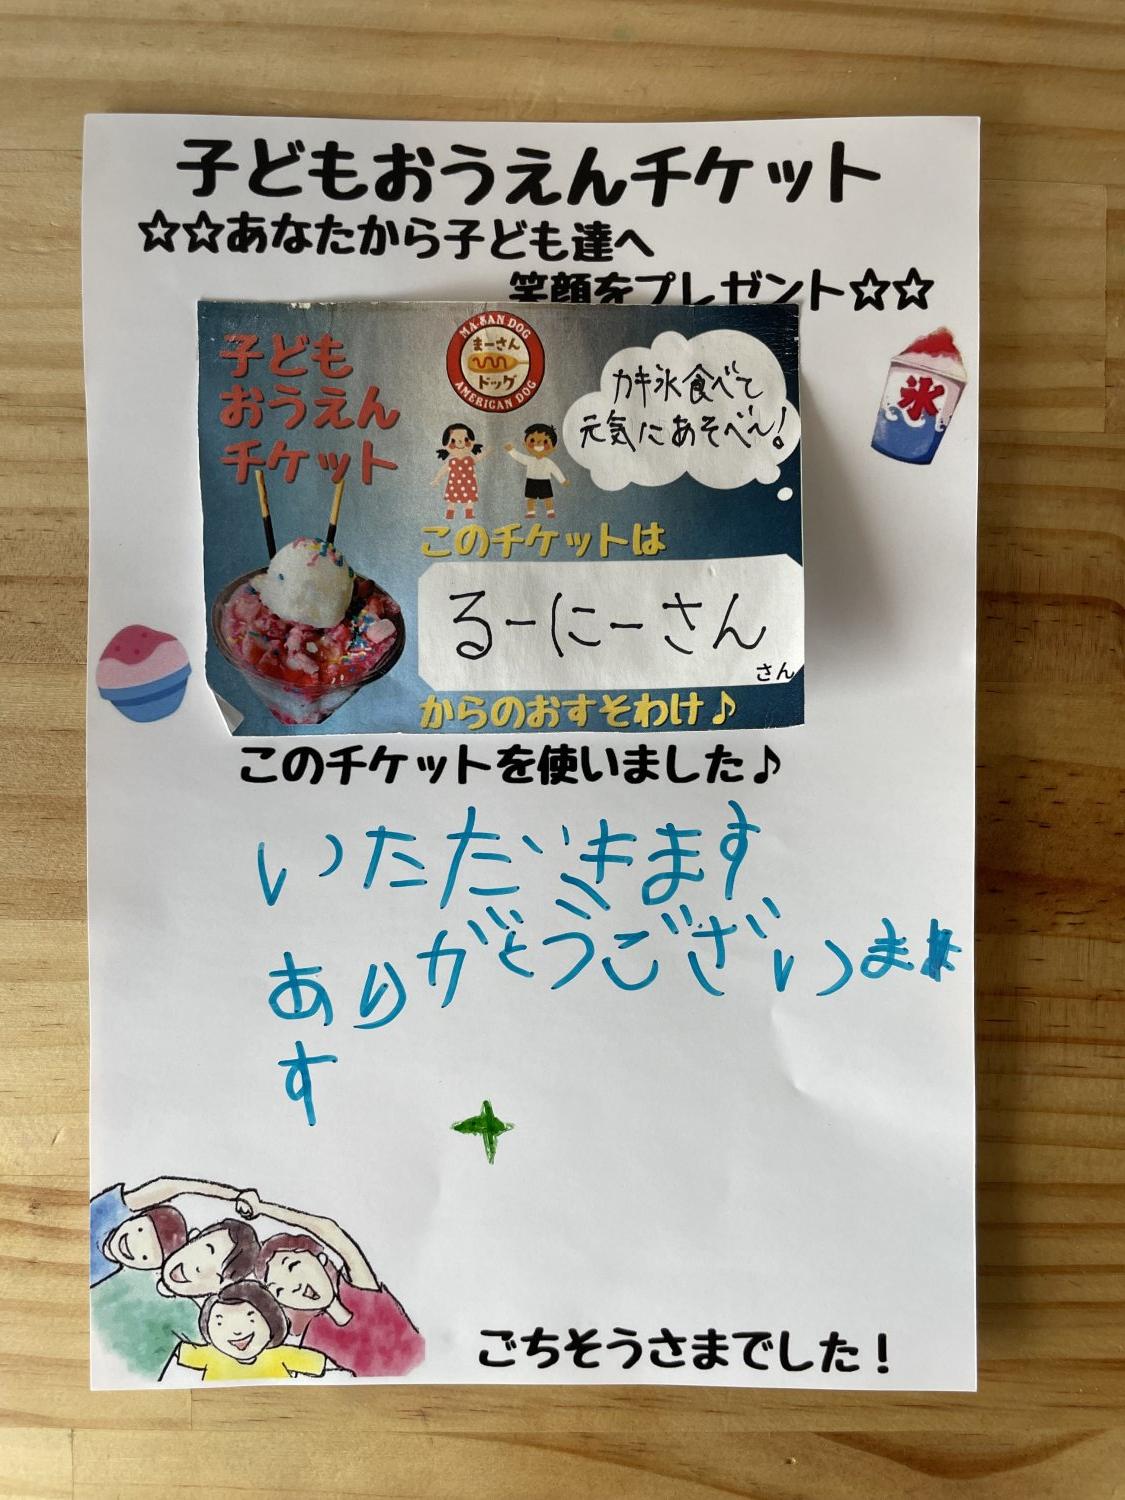 子どもおうえんチケット
☆☆あなたから子ども達へ
笑顔をプレゼント☆☆
氷
子ども
おうえん
チケット
MA-SAN DOG
まーさん
ドッグ
AMERICAN DOG
カキ氷食べて
元気にあそべ〜!
このチケットは
るーにーさん
さん
からのおすそわけ♪
このチケットを使いました♪
いただきます
ありがとうございま
す
ごちそうさまでした！